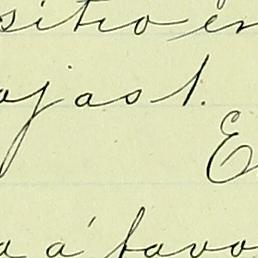 sitio en
ojas 1.
E
a á favo